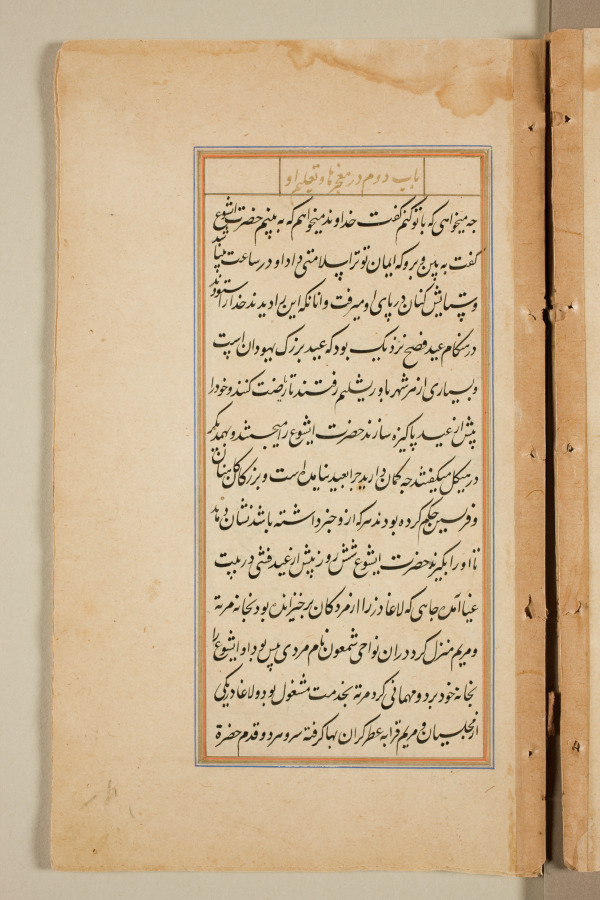 باب دوم در معجزها و تعلیم او
چه میخواهی که با تو کنم گفت خداوند میخواهم که به بینم حضرت ایشوع
گفت به بین و برو که ایمان تو ترا سلامتی داد او در ساعت بینا شد
و ستایش کنان در پای او میرفت و انانکه این را دیدند خدا را ستودند
در هنگام عید فصح نزدیک بود که عید بزرگ یهودان است
و بسیاری از هر شهر باورشلیم رفتند تا ریاضت کنند و خود را
پیش از عید پاکیزه سازند حضرت ایشوع را میجستند و بهمدیگر
در هیکل میگفتند چه گمان دارید چرا بعید نیامده است و بزرگان کاهنان
و فریسین حکم کرده بودند هر که ازو خبر داشته باشد نشان دهد
تا او را بگیرند حضرت ایشوع شش روز پیش از عید فشی در بیت
عنیا آمد جاهی که لاعاذر را از مردکان برخیزانده بود بخانه مرته
و مریم منزل کرد دران نواحی شمعون نام مردی پس بود او ایشوع را
بخانه خود برد و مهمانی کرد مرته بخدمت مشغول بود و لاعاذر یکی
از مجلسیان و مریم قرابه عطر گران بها گرفته سر و سرد و قدم حضرة